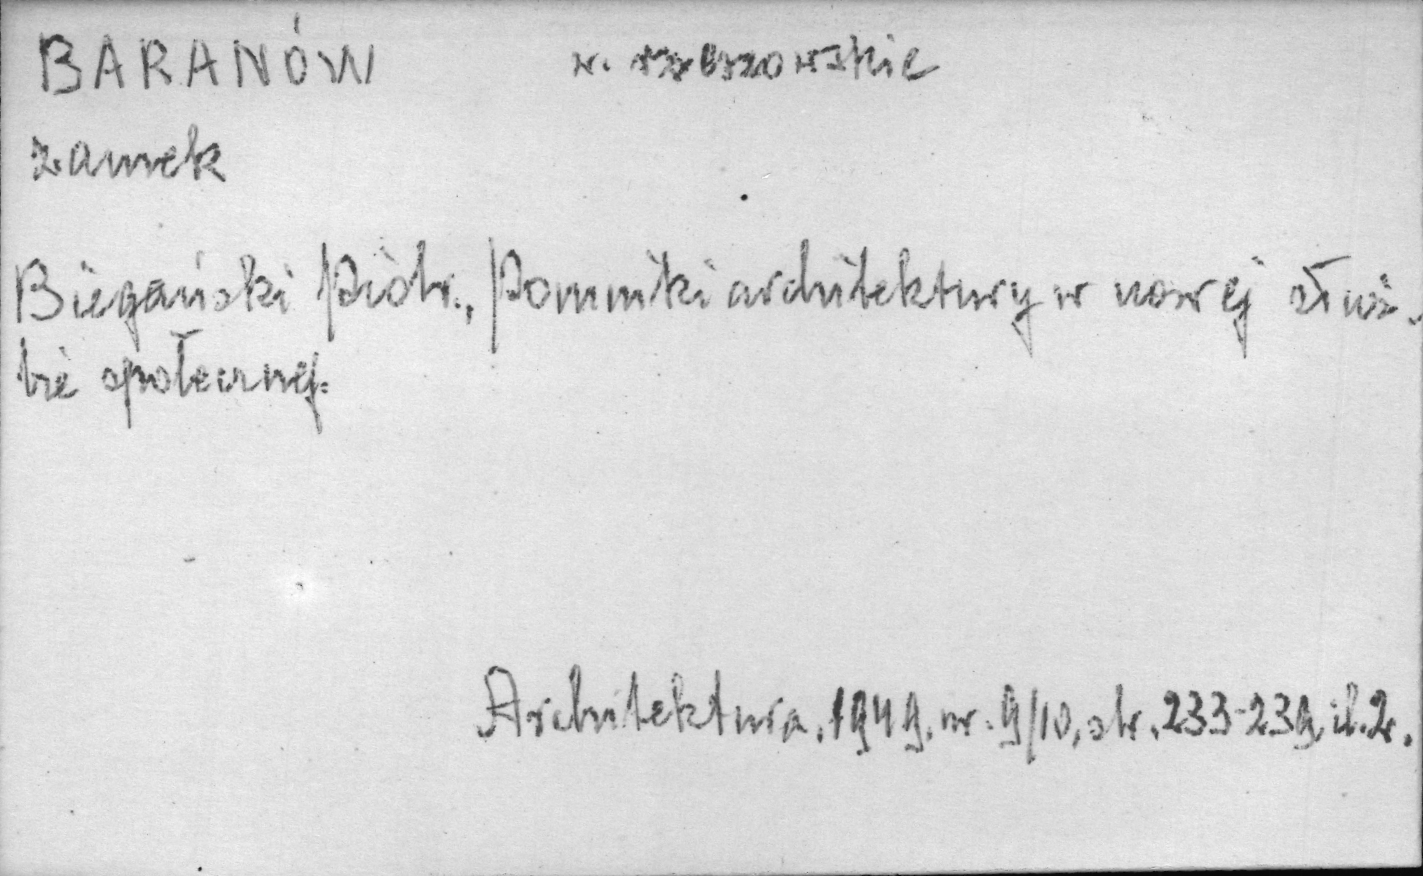 BARANÓW w. rzeszowskie
zamek
Biegański Piotr., Pomniki architektury w nowej służ-
bie społecznej.
Architektura. 1949. nr. 9/10, str. 233-239, il. 2.